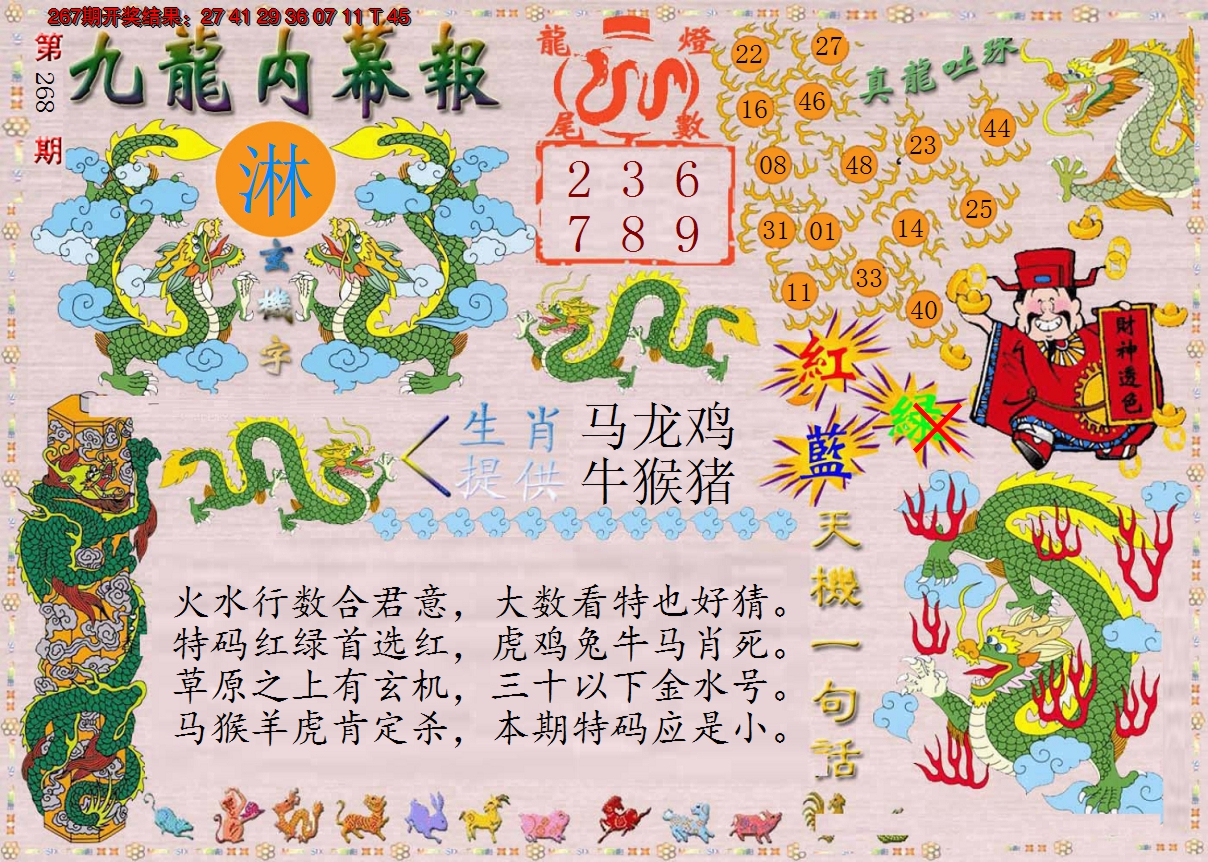 267期开奖结果：27 41 29 36 07 11 T.45
第268期
九龍内幕報
淋
玄機字
龍燈
尾數
2 3 6
7 8 9
真龍吐珠
22
27
16
46
44
23
08
48
25
31
01
14
33
11
40
財神透色
紅
綠
藍
生肖
提供
马龙鸡
牛猴猪
天機一句话
火水行数合君意，大数看特也好猜。
特码红绿首选红，虎鸡兔牛马肖死。
草原之上有玄机，三十以下金水号。
马猴羊虎肯定杀，本期特码应是小。